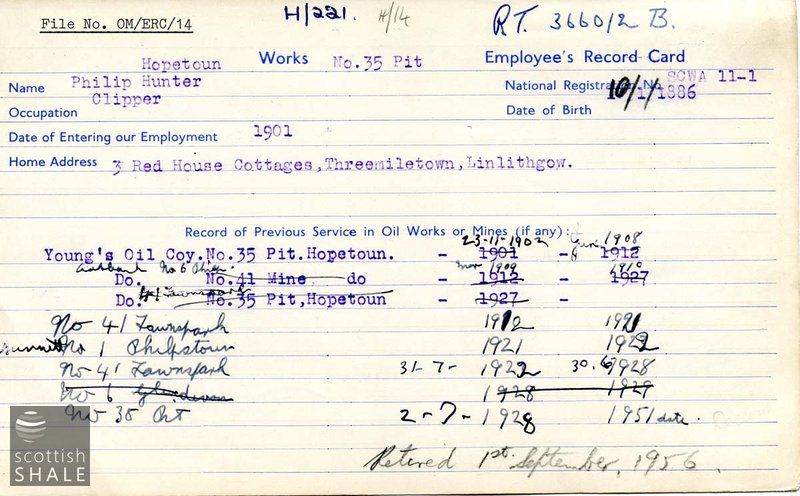 File No. OM/ERC/14 H/221. H/14 RT. 3660/2 B.
Hopetoun Works No.35 Pit Employee's Record Card
Name Philip Hunter National Registration No. SCWA 11-1
Occupation Clipper Date of Birth 10/1/1886
Date of Entering our Employment 1901
Home Address 3 Red House Cottages,Threemiletown,Linlithgow.
Record of Previous Service in Oil Works or Mines (if any):
23-11-1902 June 1908
Young's Oil Coy.No.35 Pit.Hopetoun. - 1901 - 1912
No 6 1909 1910
Do. No.41 Mine do - 1912 - 1927
41 Fawnspark
Do. No.35 Pit,Hopetoun - 1927 -
No 41 Fawnspark 1912 1921
No 1 Philpstoun 1921 1922
No 41 Fawnspark 31-7-1922 30.6.1928
No 6 Glendevon 1928 1929
No 35 Pit 2-7-1928 1951 date.
Retired 1st September, 1956.
scottish
SHALE